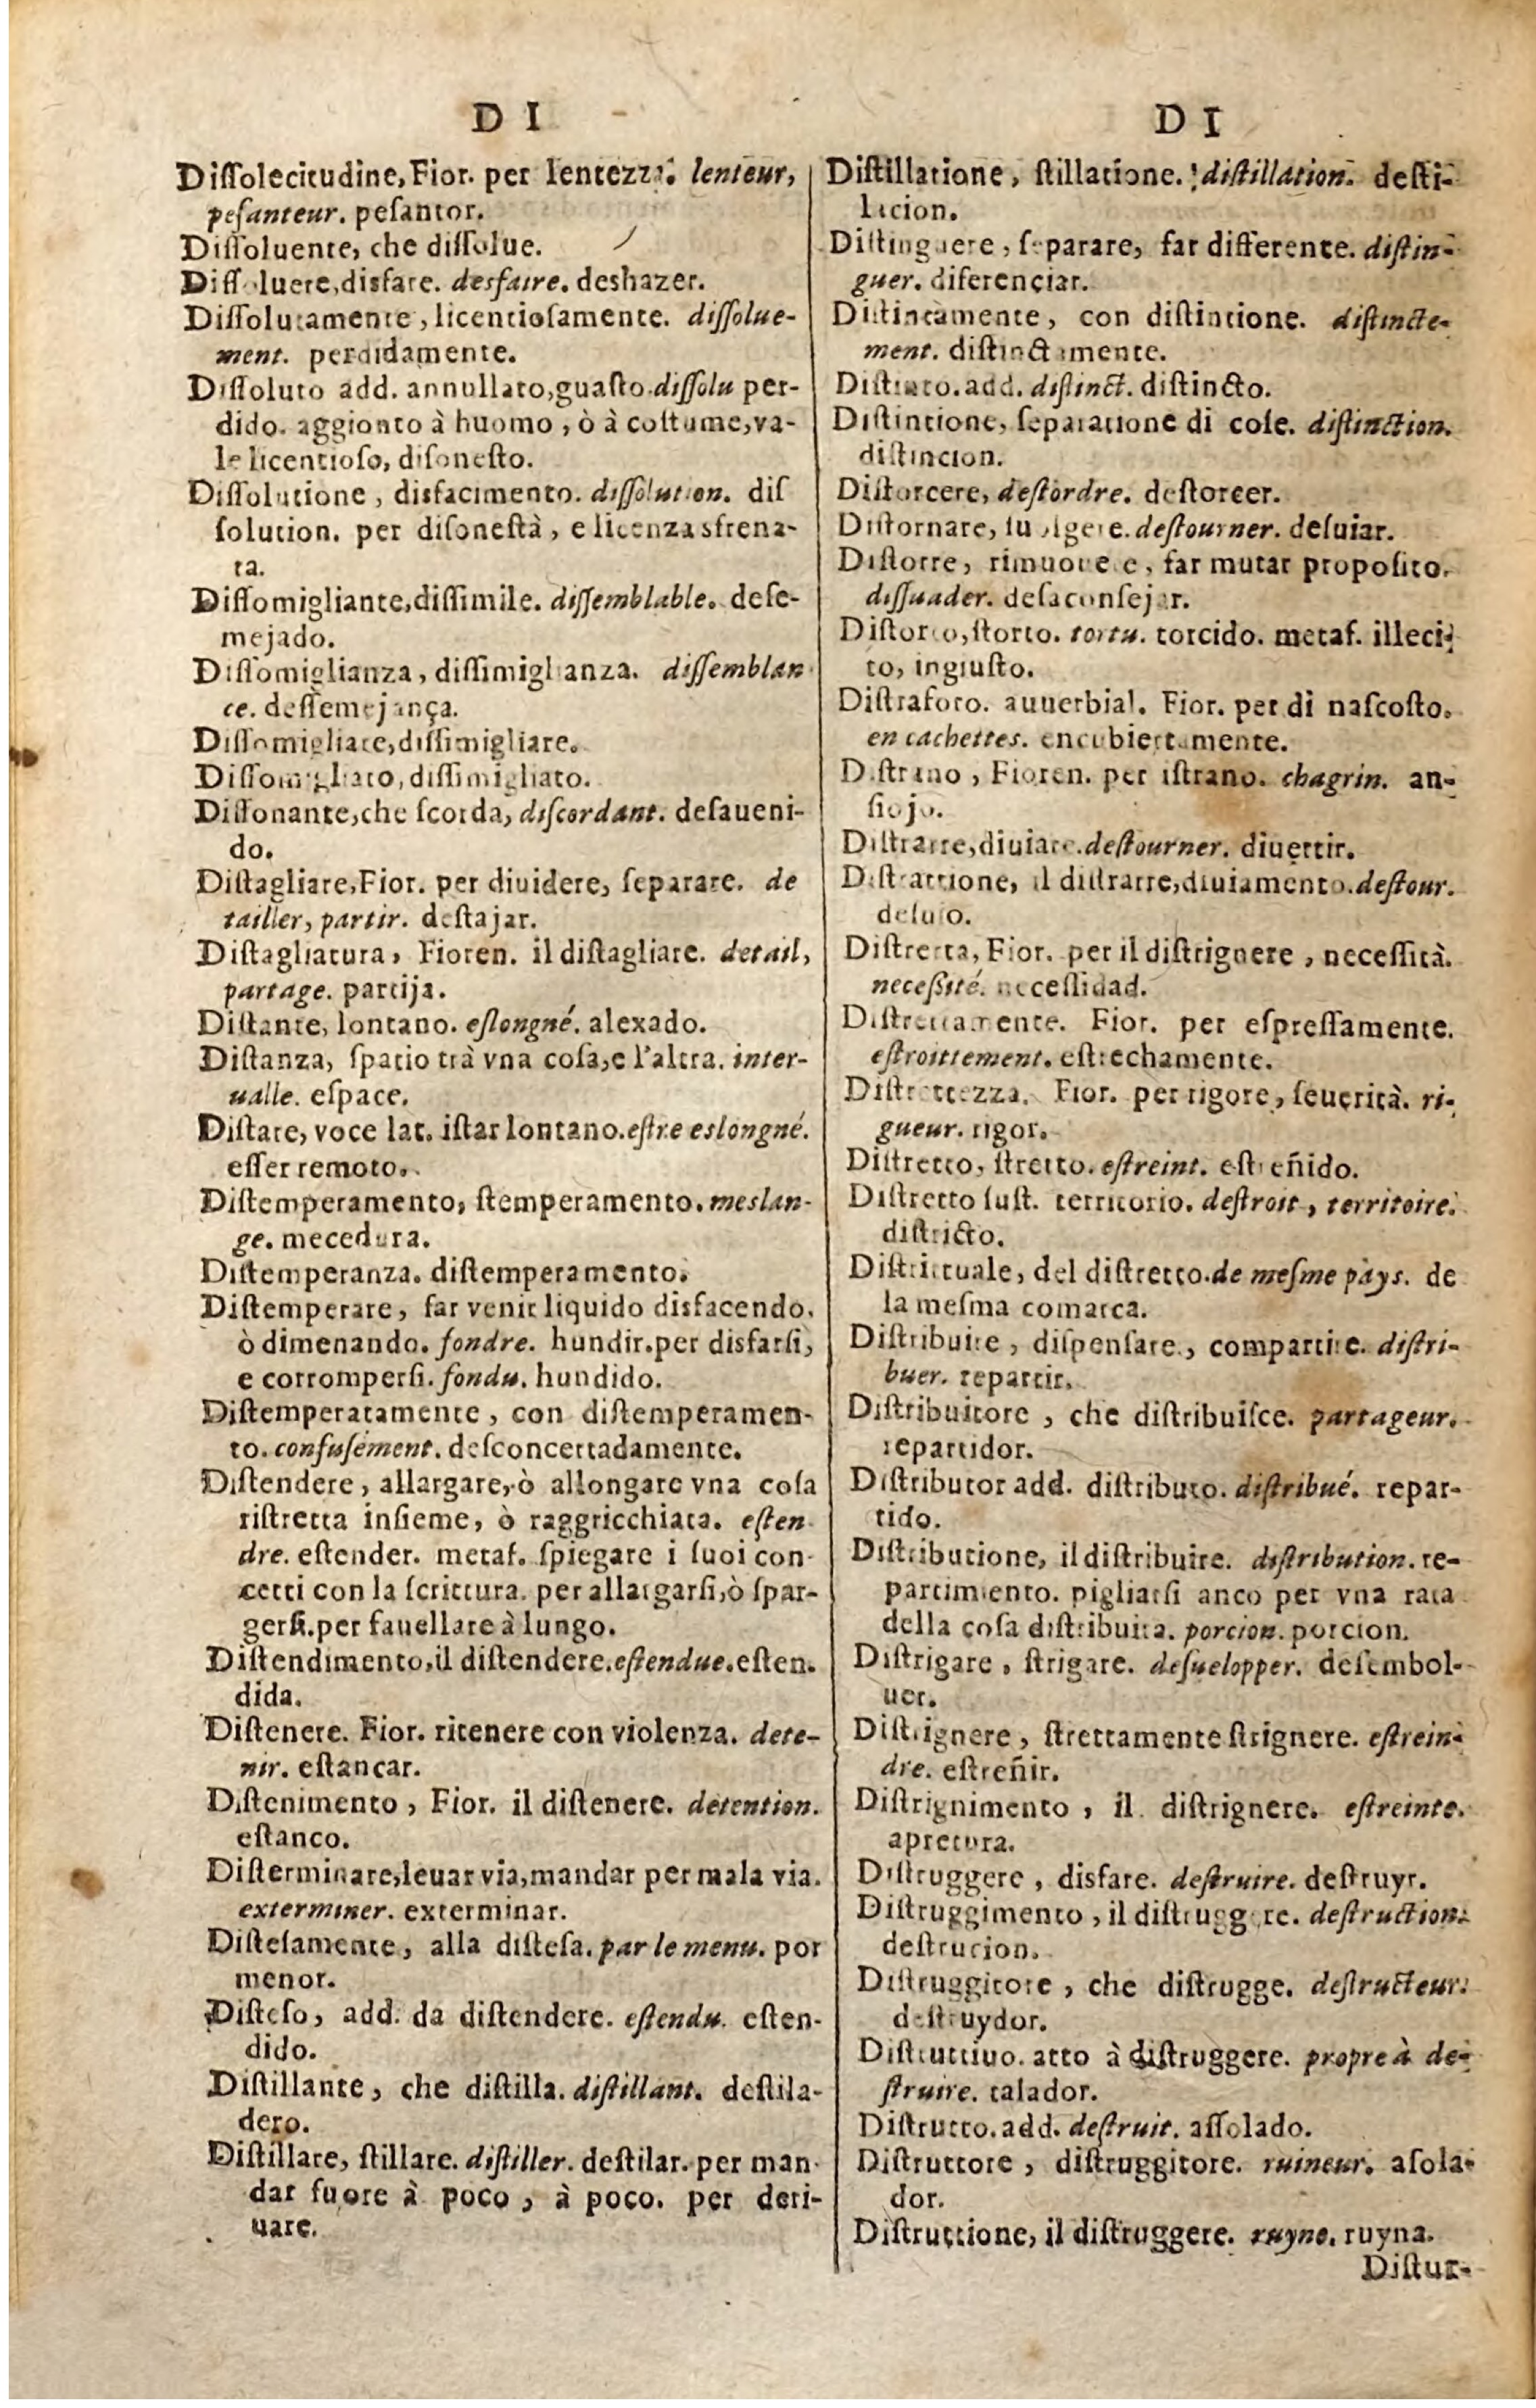 D I
Diſſolecitudine, Fior. per lentezza. lenteur,
peſanteur. peſantor.
Diſſoluente, che diſſolue.
Diſſoluere, disfare. desfaire. deshazer.
Diſſolutamente, licentioſamente. diſſolue-
ment. perdidamente.
Diſſoluto add. annullato, guaſto. diſſolu per-
dido. aggionto à huomo, ò à coſtume, va-
le licentioſo, diſoneſto.
Diſſolutione, disfacimento. diſſolution. diſ
ſolution. per diſoneſtà, e licenza sfrena-
ta.
Diſſomigliante, diſſimile. diſſemblable. deſe-
mejado.
Diſſomiglianza, diſſimiglianza. diſſemblan
ce. deſſemejança.
Diſſomigliare, diſſimigliare.
Diſſomigliato, diſſimigliato.
Diſſonante, che ſcorda, diſcordant. deſaueni-
do.
Diſtagliare, Fior. per diuidere, ſeparare. de
tailler, partir. deſtajar.
Diſtagliatura, Fioren. il diſtagliare. detail,
partage. partija.
Diſtante, lontano. eſlongné. alexado.
Diſtanza, ſpatio trà vna coſa, e l'altra. inter-
ualle. eſpace.
Diſtare, voce lat. iſtar lontano. eſtre eslongné.
eſſer remoto.
Diſtemperamento, ſtemperamento. meslan-
ge. mecedura.
Diſtemperanza. diſtemperamento.
Diſtemperare, far venir liquido disfacendo.
ò dimenando. fondre. hundir. per disfarſi,
e corromperſi. fondu. hundido.
Diſtemperatamente, con diſtemperamen-
to. confuſement. deſconcertadamente.
Diſtendere, allargare, ò allongare vna coſa
riſtretta inſieme, ò raggricchiata. eſten
dre. eſtender. metaf. ſpiegare i ſuoi con-
cetti con la ſcrittura. per allargarſi, ò ſpar-
gerſi. per fauellare à lungo.
Diſtendimento, il diſtendere. eſtendue. eſten.
dida.
Diſtenere. Fior. ritenere con violenza. dete-
nir. eſtancar.
Diſtenimento, Fior. il diſtenere. detention.
eſtanco.
Diſterminare, leuar via, mandar per mala via.
exterminer. exterminar.
Diſteſamente, alla diſteſa. par le menu. por
menor.
Diſteſo, add. da diſtendere. eſtendu. eſten-
dido.
Diſtillante, che diſtilla. diſtillant. deſtila-
dero.
Diſtillare, ſtillare. diſtiller. deſtilar. per man-
dar fuore à poco, à poco. per deri-
uare.
D I
Diſtillatione, ſtillatione. diſtillation. deſti-
lacion.
Diſtinguere, ſeparare, far differente. diſtin-
guer. diferençiar.
Diſtintamente, con diſtintione. diſtincte-
ment. diſtinctamente.
Diſtinto. add. diſtinct. diſtincto.
Diſtintione, ſeparatione di coſe. diſtinction.
diſtincion.
Diſtorcere, deſtordre. deſtorcer.
Diſtornare, ſuolgere. deſtourner. deſuiar.
Diſtorre, rimuouere, far mutar propoſito.
diſſuader. deſaconſejar.
Diſtorto, ſtorto. tortu. torcido. metaf. illeci-
to, ingiuſto.
Diſtraforo. auuerbial. Fior. per di naſcoſto.
en cachettes. encubiertamente.
Diſtrano, Fioren. per iſtrano. chagrin. an-
ſiojo.
Diſtrarre, diuiare. deſtourner. diuertir.
Diſtrattione, il diſtrarre, diuiamento. deſtour.
deſuio.
Diſtretta, Fior. per il diſtrignere, neceſſità.
neceſſité. neceſſidad.
Diſtrettamente. Fior. per eſpreſſamente.
eſtroittement. eſtrechamente.
Diſtrettezza. Fior. per rigore, ſeuerità. ri-
gueur. rigor.
Diſtretto, ſtretto. eſtreint. eſtreñido.
Diſtretto ſuſt. territorio. deſtroit, territoire.
diſtricto.
Diſtrittuale, del diſtretto. de meſme pays. de
la meſma comarca.
Diſtribuire, diſpenſare, compartire. diſtri-
buer. repartir.
Diſtribuitore, che diſtribuiſce. partageur.
repartidor.
Diſtributor add. diſtributo. diſtribué. repar-
tido.
Diſtributione, il diſtribuire. diſtribution. re-
partimiento. pigliarſi anco per vna rata
della coſa diſtribuita. porcion. porcion.
Diſtrigare, ſtrigare. deſuelopper. deſembol-
uer.
Diſtrignere, ſtrettamente ſtrignere. eſtrein-
dre. eſtreñir.
Diſtrignimento, il diſtrignere. eſtreinte.
apretura.
Diſtruggere, disfare. deſtruire. deſtruyr.
Diſtruggimento, il diſtruggere. deſtruction.
deſtrucion.
Diſtruggitore, che diſtrugge. deſtructeur.
deſtruydor.
Diſtruttiuo. atto à diſtruggere. propre à de-
ſtruire. talador.
Diſtrutto. add. deſtruit. aſſolado.
Diſtruttore, diſtruggitore. ruineur. aſola-
dor.
Diſtruttione, il diſtruggere. ruyne. ruyna.
Diſtur-